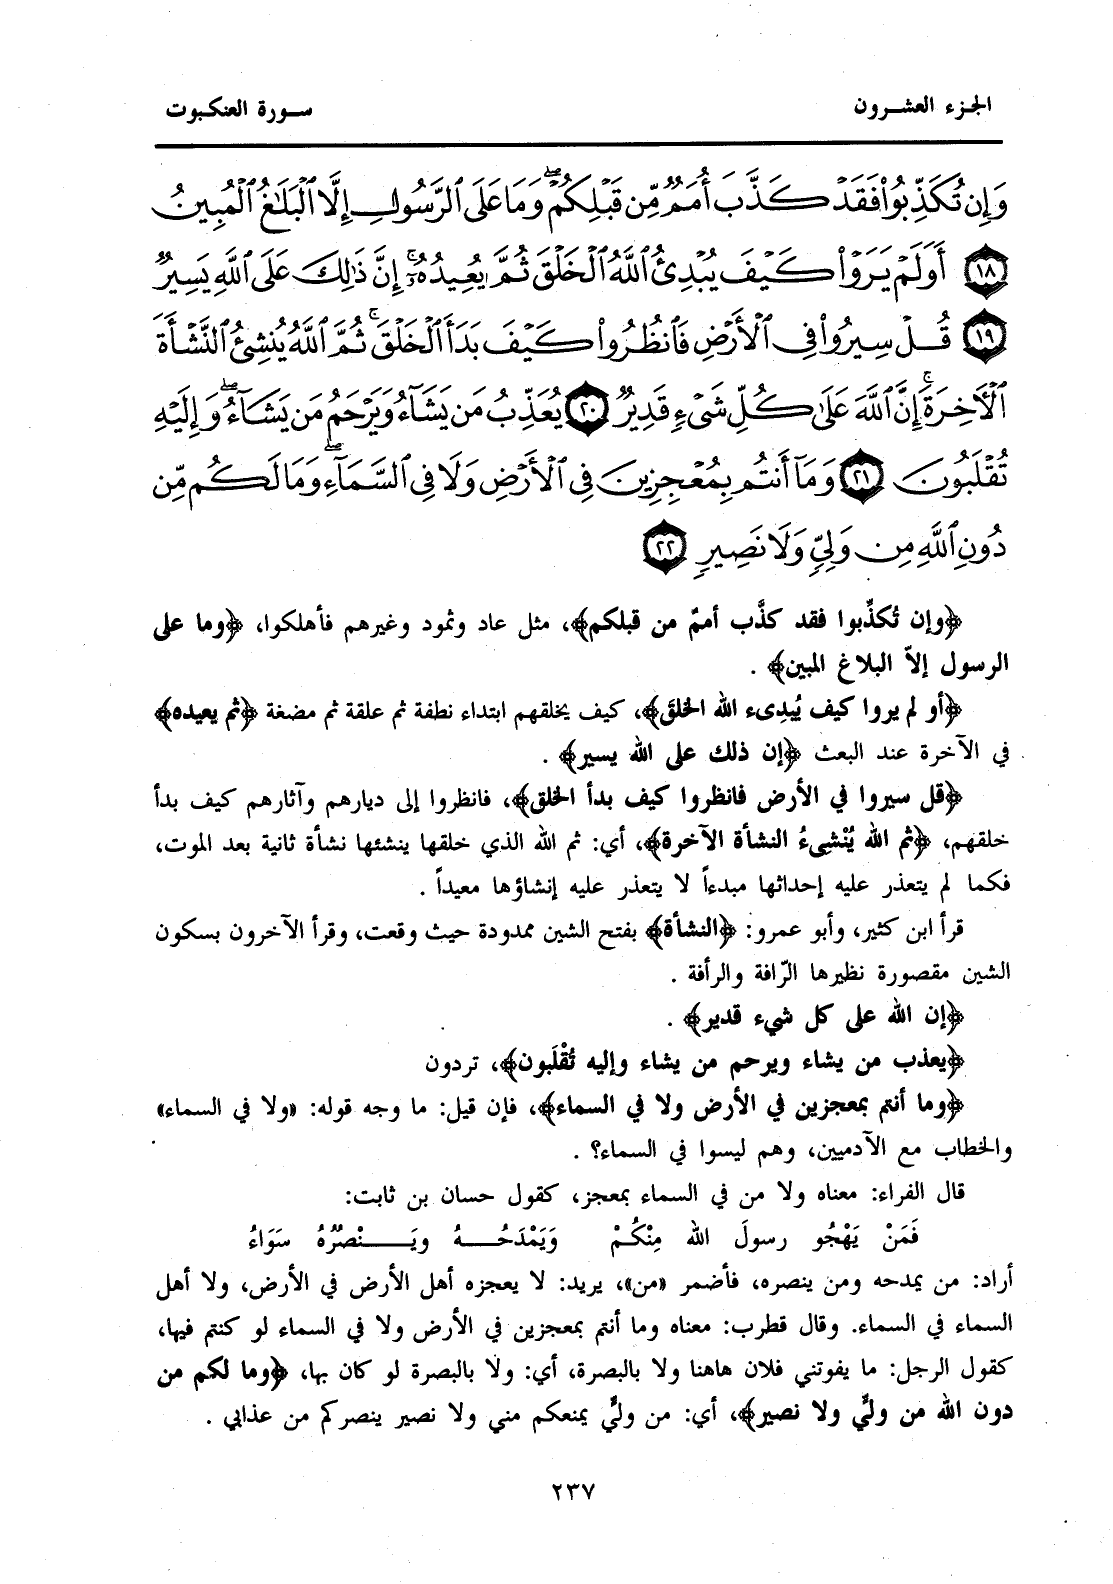 الجزء العشرون
سورة العنكبوت
وَإِن تُكَذِّبُوا۟ فَقَدْ كَذَّبَ أُمَمٌ مِّن قَبْلِكُمْ ۖ وَمَا عَلَى ٱلرَّسُولِ إِلَّا ٱلْبَلَٰغُ ٱلْمُبِينُ
﴿١٨﴾ أَوَلَمْ يَرَوْا۟ كَيْفَ يُبْدِئُ ٱللَّهُ ٱلْخَلْقَ ثُمَّ يُعِيدُهُۥٓ ۚ إِنَّ ذَٰلِكَ عَلَى ٱللَّهِ يَسِيرٌ
﴿١٩﴾ قُلْ سِيرُوا۟ فِى ٱلْأَرْضِ فَٱنظُرُوا۟ كَيْفَ بَدَأَ ٱلْخَلْقَ ۚ ثُمَّ ٱللَّهُ يُنشِئُ ٱلنَّشْأَةَ
ٱلْءَاخِرَةَ ۚ إِنَّ ٱللَّهَ عَلَىٰ كُلِّ شَىْءٍ قَدِيرٌ ﴿٢٠﴾ يُعَذِّبُ مَن يَشَآءُ وَيَرْحَمُ مَن يَشَآءُ ۖ وَإِلَيْهِ
تُقْلَبُونَ ﴿٢١﴾ وَمَآ أَنتُم بِمُعْجِزِينَ فِى ٱلْأَرْضِ وَلَا فِى ٱلسَّمَآءِ ۖ وَمَا لَكُم مِّن
دُونِ ٱللَّهِ مِن وَلِىٍّ وَلَا نَصِيرٍ ﴿٢٢﴾
﴿وإن تُكذِّبوا فقد كذَّب أممٌ من قبلكم﴾، مثل عاد وثمود وغيرهم فأهلكوا، ﴿وما على
الرسول إلاّ البلاغ المبين﴾ .
﴿أو لم يروا كيف يُبدِىء الله الخلقَ﴾، كيف يخلقهم ابتداء نطفة ثم علقة ثم مضغة ﴿ثم يعيده﴾
في الآخرة عند البعث ﴿إن ذلك على الله يسير﴾ .
﴿قل سيروا في الأرض فانظروا كيف بدأ الخلق﴾، فانظروا إلى ديارهم وآثارهم كيف بدأ
خلقهم، ﴿ثم الله يُنْشِىءُ النشأة الآخرة﴾، أي: ثم الله الذي خلقها ينشئها نشأة ثانية بعد الموت،
فكما لم يتعذر عليه إحداثها مبدءاً لا يتعذر عليه إنشاؤها معيداً .
قرأ ابن كثير، وأبو عمرو: ﴿النشأة﴾ بفتح الشين ممدودة حيث وقعت، وقرأ الآخرون بسكون
الشين مقصورة نظيرها الرّافة والرأفة .
﴿إن الله على كل شيء قدير﴾ .
﴿يعذب من يشاء ويرحم من يشاء وإليه تُقْلَبون﴾، تردون
﴿وما أنتم بمعجزين في الأرض ولا في السماء﴾، فإن قيل: ما وجه قوله: «ولا في السماء»
والخطاب مع الآدميين، وهم ليسوا في السماء؟ .
قال الفراء: معناه ولا من في السماء بمعجز، كقول حسان بن ثابت:
فَمَنْ يَهْجُو رسولَ الله مِنْكُمْ وَيَمْدَحُـــهُ ويَـــنْصُرُهُ سَوَاءُ
أراد: من يمدحه ومن ينصره، فأضمر «من»، يريد: لا يعجزه أهل الأرض في الأرض، ولا أهل
السماء في السماء. وقال قطرب: معناه وما أنتم بمعجزين في الأرض ولا في السماء لو كنتم فيها،
كقول الرجل: ما يفوتني فلان هاهنا ولا بالبصرة، أي: ولا بالبصرة لو كان بها، ﴿وما لكم من
دون الله من وليٍّ ولا نصير﴾، أي: من وليٍّ يمنعكم مني ولا نصير ينصركم من عذابي .
٢٣٧